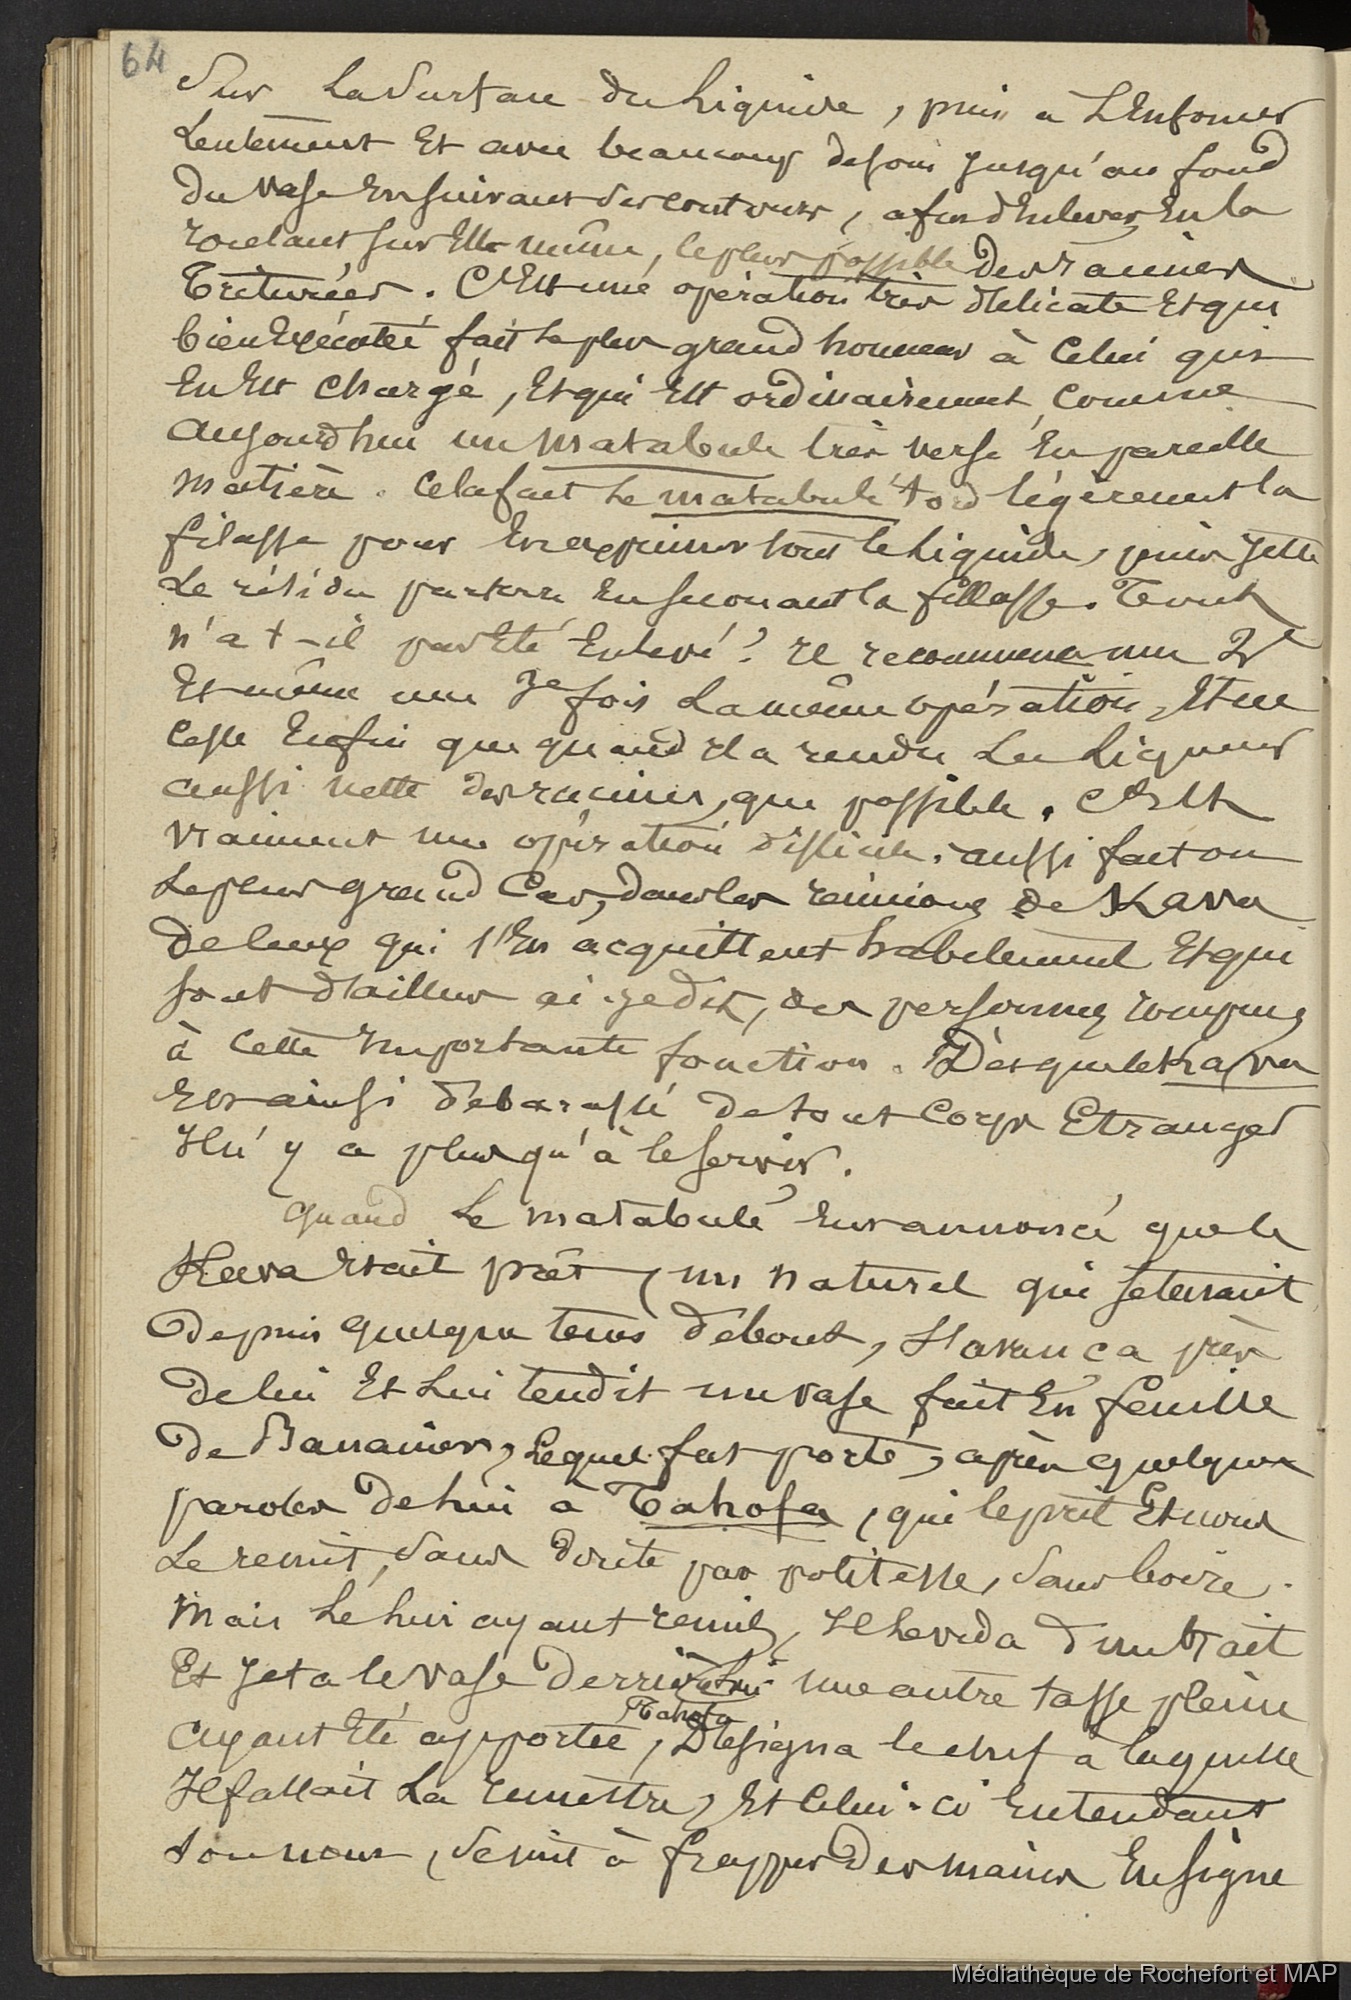 64
Sur la Surface du Liquide, puis a L'Enfoncer
Lentement Et avec beaucoup de soin jusqu'au fond
Du vase En suivant Ses Contours, afin d'Enlever, En la
roulant sur Elle même, le plus possible Des racines
Triturées. C'Est une opération très délicate Et qui
bien Exécutée fait le plus grand honneur à Celui qui
En Est Chargé, Et qui Est ordinairement, Comme
aujourd'hui un Matabule très versé En pareille
Matière. Cela fait Le matabulé tord légèrement la
filasse pour En exprimer tout le Liquide, puis jette
Le résidu par terre En secouant la fillasse. Tout
n'a t-il pas Eté Enlevé? Il recommence une 2e
Et même une 3e fois La même opération, Et ne
Cesse Enfin que quand Il a rendu La Liqueur
aussi nette des racines, que possible. C'Est
Vraiment une opération difficile. aussi fait on
Le plus grand Cas, dans les réunions de Kava
De Ceux qui s'En acquittent habilement Et qui
sont d'ailleurs ai-je dit, des personnes rompues
à Cette Importante fonction. Dès que le Kava
Est ainsi débarassé De tout Corps Etranger
Il n'y a plus qu'à le Servir.
Quand Le Matabulé Eut annoncé que le
Kava Etait prêt, un Naturel qui se tenait
Depuis quelque tems Débout, s'avança près
De lui Et Lui tendit un vase fait En feuille
De Bananiers, Lequel fut porté, après quelques
paroles De Lui à Tahofa, qui le prit Et nous
Le remit, Sans doute par politesse, Sans boire.
Mais Le Lui ayant remis, Il Le vida d'un trait
Et jeta le vase Derrière Lui une autre tasse pleine
Tahofa
ayant Eté apportée, Désigna le chef à laquelle
Il fallait La remettre, Et Celui-ci Entendant
Son nom, Se mit à frapper Des mains En signe
Médiathèque de Rochefort et MAP